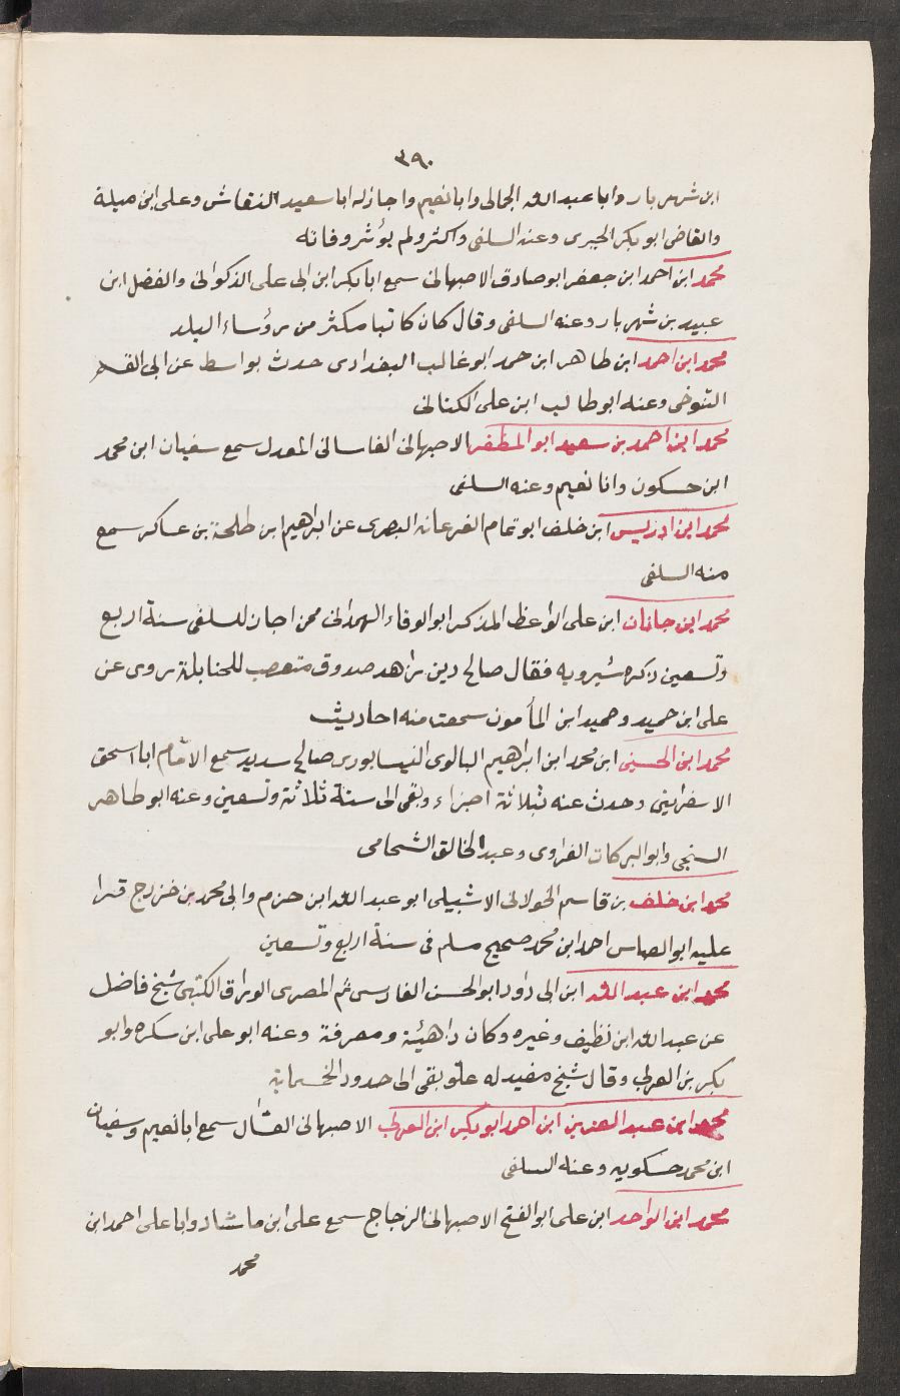 ٣٩٠
ابن شهريار وابا عبد الله الجمالى وابا نعيم واجاز له ابا سعيد النقاش وعلى ابن ميلة
والقاضى ابو بكر الحيرى وعنه السلفى واكثر ولم يؤثر وفاته
محمد ابن احمد ابن جعفر ابو صادق الاصبهانى سمع ابا بكر ابن ابى على الذكوانى والفضل ابن
عبيد بن شهريار وعنه السلفى وقال كان كاتبا مكثر من رؤساء البلد
محمد ابن احمد ابن طاهر ابن حمد ابو غالب البغدادى حدث بواسط عن ابى القسم
التنوخى وعنه ابو طالب ابن على الكتانى
محمد ابن احمد بن سعيد ابو المظفر الاصبهانى الفاسانى المعدل سمع سفيان ابن محمد
ابن حسكون وابا نعيم وعنه السلفى
محمد ابن ادريس ابن خلف ابو تمام الفرعانه البصرى عن ابراهيم ابن طلحة بن عساكر سمع
منه السلفى
محمد ابن جابان ابن على الواعظ المذكر ابو الوفاء الهمدانى ممن اجاز للسلفى سنة اربع
وتسعين ذكره شيرويه فقال صالح دين زاهد صدوق متعصب للحنابلة يروى عن
على ابن حميد وحميد ابن المأمون سمعت منه احاديث
محمد ابن الحسين ابن محمد ابن ابراهيم البالوى النيسابورى صالح سديد سمع الامام ابا اسحق
الاسفراينى وحدث عنه بثلاثة اجزاء وبقى الى سنة ثلاثة وتسعين وعنه ابو طاهر
السنجى وابو البركات الفراوى وعبد الخالق الشحامى
محمد ابن خلف بن قاسم الخولانى الاشبيلى ابو عبد الله ابن حزم وابى محمد بن خزرج قرا
عليه ابو العباس احمد ابن محمد صحيح مسلم فى سنة اربع وتسعين
محمد ابن عبد الله ابن ابى داود ابو الحسن الفارسى ثم المصرى الوراق الكتبى شيخ فاضل
عن عبد الله ابن نظيف وغيره وكان ذا هيئة ومعرفة وعنه ابو على ابن سكره وابو
بكر بن العربى وقال شيخ مفيد له علو بقى الى حدود الخمسماية
محمد ابن عبد العزيز ابن احمد ابو بكر ابن العربى الاصبهانى العسال سمع ابا نعيم وسفيان
ابن محمد حسكويه وعنه السلفى
محمد ابن الواحد ابن على ابو الفتح الاصبهانى الزجاج سمع على ابن ماشاد وابا على احمد ابن
محمد